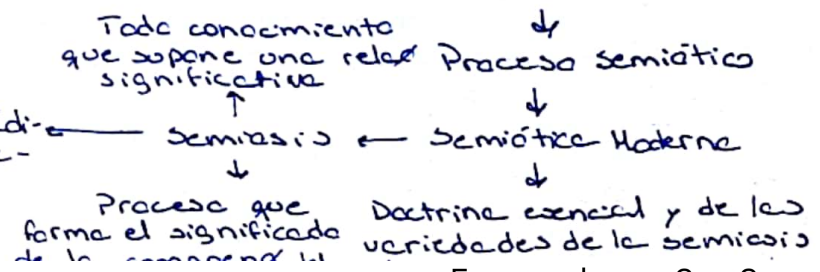 Todo conocimiento
que supone una relac
significativa
Proceso semiótico
di-
Semiosis
Semiótica Moderna
Proceso que
forma el significado
de la
Doctrina esencial y de las
variedades de la semiosis